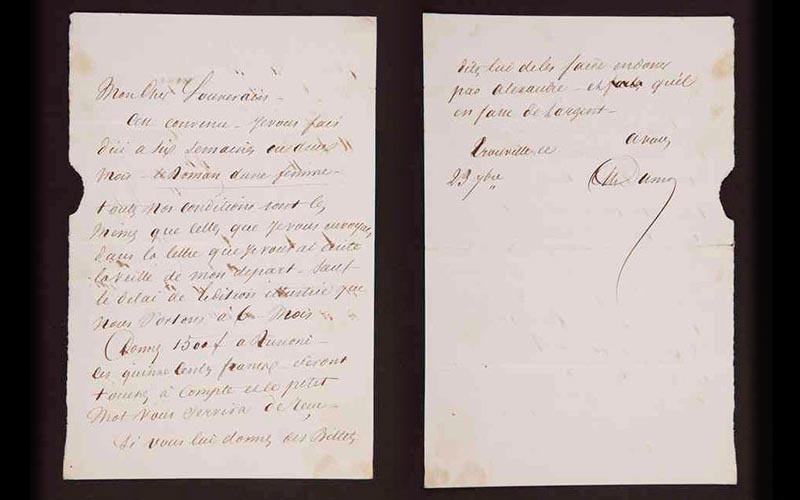 Mon Cher Souverain –
C'est convenu – Je vous fais
d'ici à six semaines ou deux
mois – le Roman d'une femme –
toutes nos conditions sont les
mêmes que celles que je vous envoyai
dans la lettre que je vous ai écrite
la veille de mon départ – sauf
le délai de l'édition illustrée que
nous portons à 6 mois
Donnez 1500 f a
les quinze cents francs – seront
à Compte et le petit
mot vous servira de Reçu –
Si vous lui donnez des Billets
dites lui de les faire endosser
par Alexandre – et qu'il
en fasse de l'argent –
Trouville ce a vous
23 7bre A Dumas